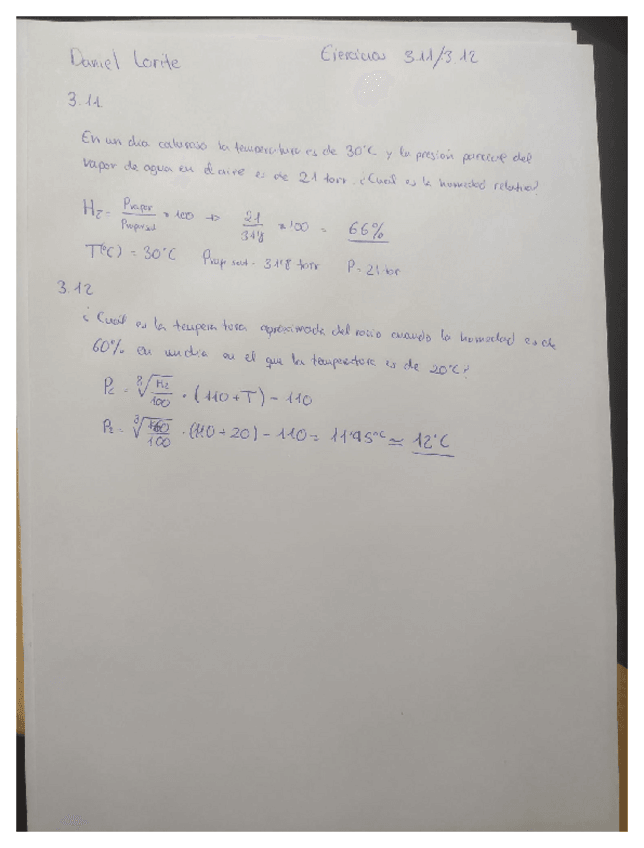 Daniel Lorite Ejercicios 3.11/3.12
3.11
En un día caluroso la temperatura es de 30°C y la presión parcial del
vapor de agua en el aire es de 21 torr. ¿Cuál es la humedad relativa?
Hr = Pvapor / Pvap sat × 100 → 21 / 31'8 × 100 = 66%
T(°C) = 30°C Pvap sat = 31'8 torr P = 21 torr
3.12
¿Cuál es la temperatura aproximada del rocío cuando la humedad es de
60% en un día en el que la temperatura es de 20°C?
Pr = ⁸√(Hr/100) · (110 + T) - 110
Pr = ⁸√(60/100) · (110 + 20) - 110 = 11'95°C ≃ 12°C